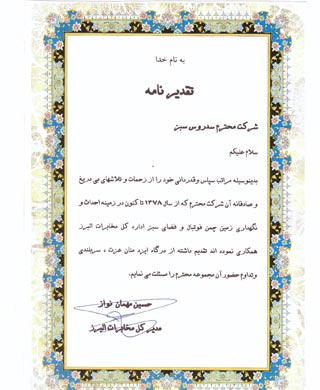 به نام خدا
تقدیر نامه
شرکت محترم سدروس سبز
سلام علیکم
بدینوسیله مراتب سپاس وقدردانی خود را از زحمات و تلاشهای بی دریغ
و صادقانه آن شرکت محترم که از سال ۱۳۷۸ تا کنون در زمینه احداث و
نگهداری زمین چمن فوتبال و فضای سبز اداره کل مخابرات البرز
همکاری نموده اند تقدیم داشته از درگاه ایزد منان عزت ، سربلندی
وتداوم حضور آن مجموعه محترم را مسئلت می نمایم.
حسین مهمان نواز
مدیر کل مخابرات البرز